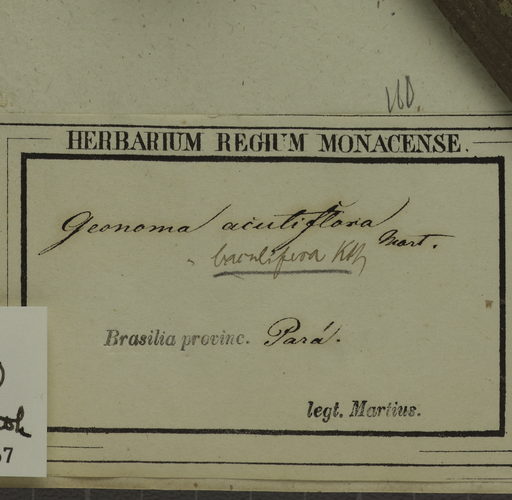 160.
HERBARIUM REGIUM MONACENSE.
Geonoma acutiflora Mart.
baculifera Kth
Brasilia provinc. Pará.
legt. Martius.
7